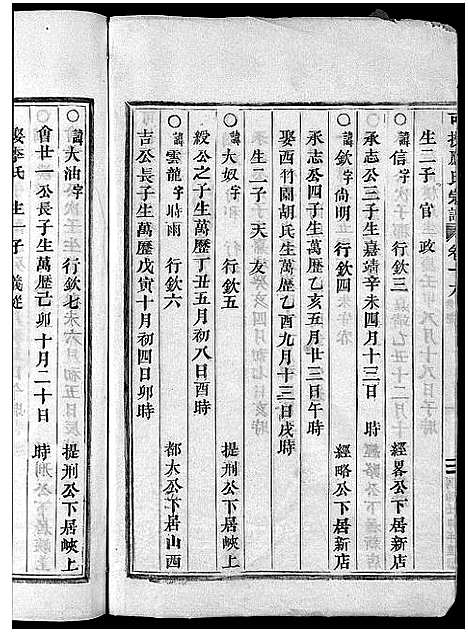 氏宗譜 卷十六
生二子 官 政
○諱信字 行欽三 經畧公下居新店
承志公三子生嘉靖辛未四月十三日 時
○諱欽字尙明 行欽四 經略公下居新店
承志公四子生萬歷乙亥五月廿三日午時
娶西竹園胡氏生萬歷乙酉九月十三日戌時
生二子 天 友
○諱大奴字 行欽五 提刑公下居峽上
綬公之子生萬歷丁丑五月初八日酉時
○諱雲龍字時雨 行欽六 都大公下居山西
吉公長子生萬歷戊寅十月初四日卯時
○諱大油字 行欽七 提刑公下居峽上
會廿一公長子生萬歷己卯十月二十日 時
娶李氏 生 子